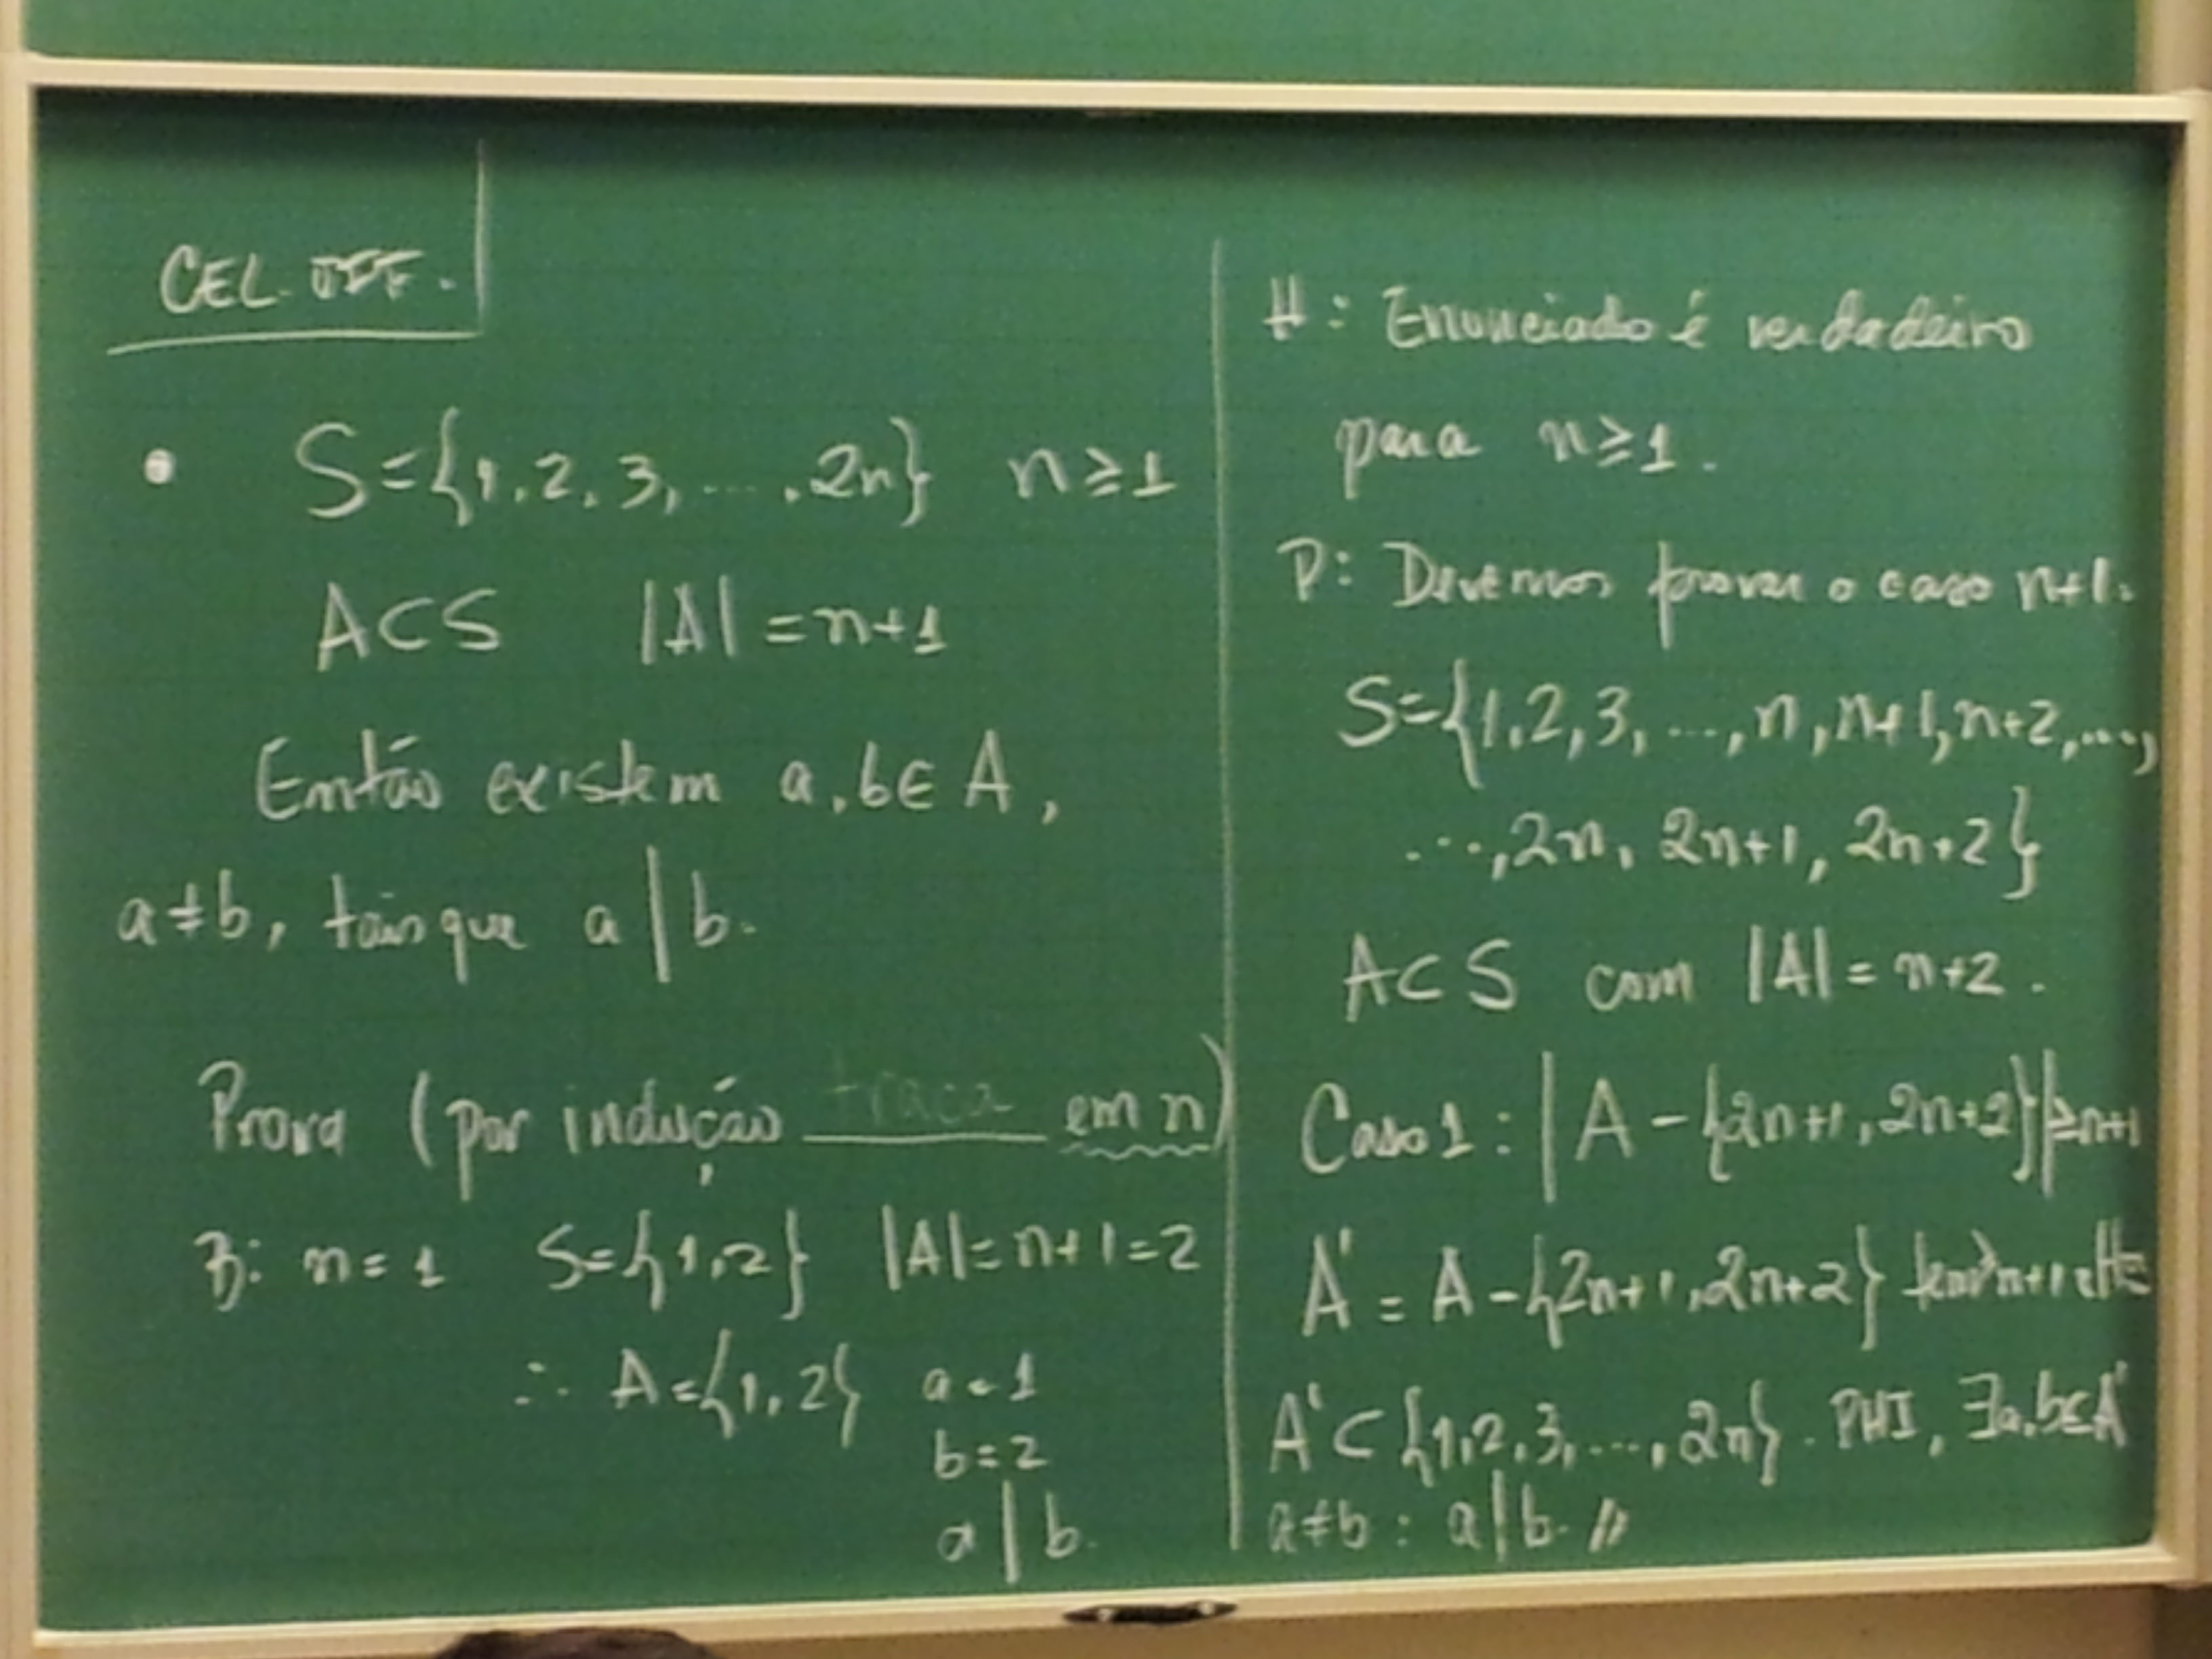 CEL. OFF.
• S={1,2,3,...,2n} n≥1
A⊂S |A|=n+1
Então existem a,b∈A,
a≠b, tais que a|b.
Prova (por indução fraca em n)
B: n=1 S={1,2} |A|=n+1=2
∴ A={1,2} a=1
b=2
a|b.
H: Enunciado é verdadeiro
para n≥1.
P: Devemos provar o caso n+1.
S={1,2,3,...,n,n+1,n+2,...,
...,2n, 2n+1, 2n+2}
A⊂S com |A|=n+2.
Caso 1: |A-{2n+1,2n+2}|≥n+1
A'=A-{2n+1,2n+2} tem ≥n+1
A'⊂{1,2,3,...,2n}. PHI, ∃a,b∈A'
a≠b: a|b. //